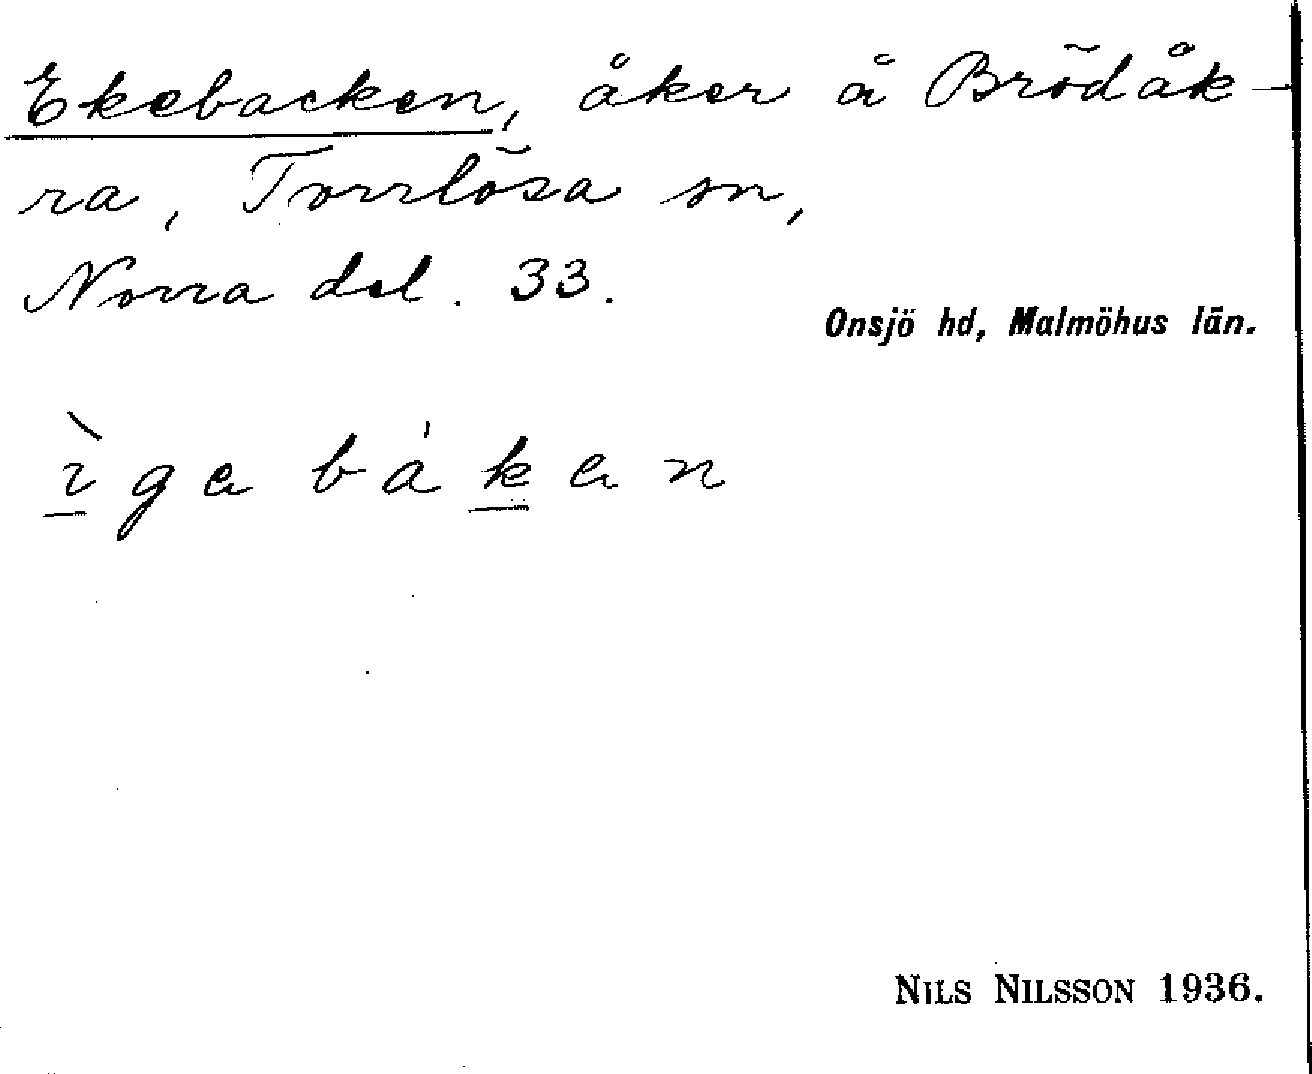 Ekebacken, åker å Brödåk-
ra, Torrlösa sn,
Norra del. 33.
Onsjö hd, Malmöhus län.
ìga bákan
NILS NILSSON 1936.